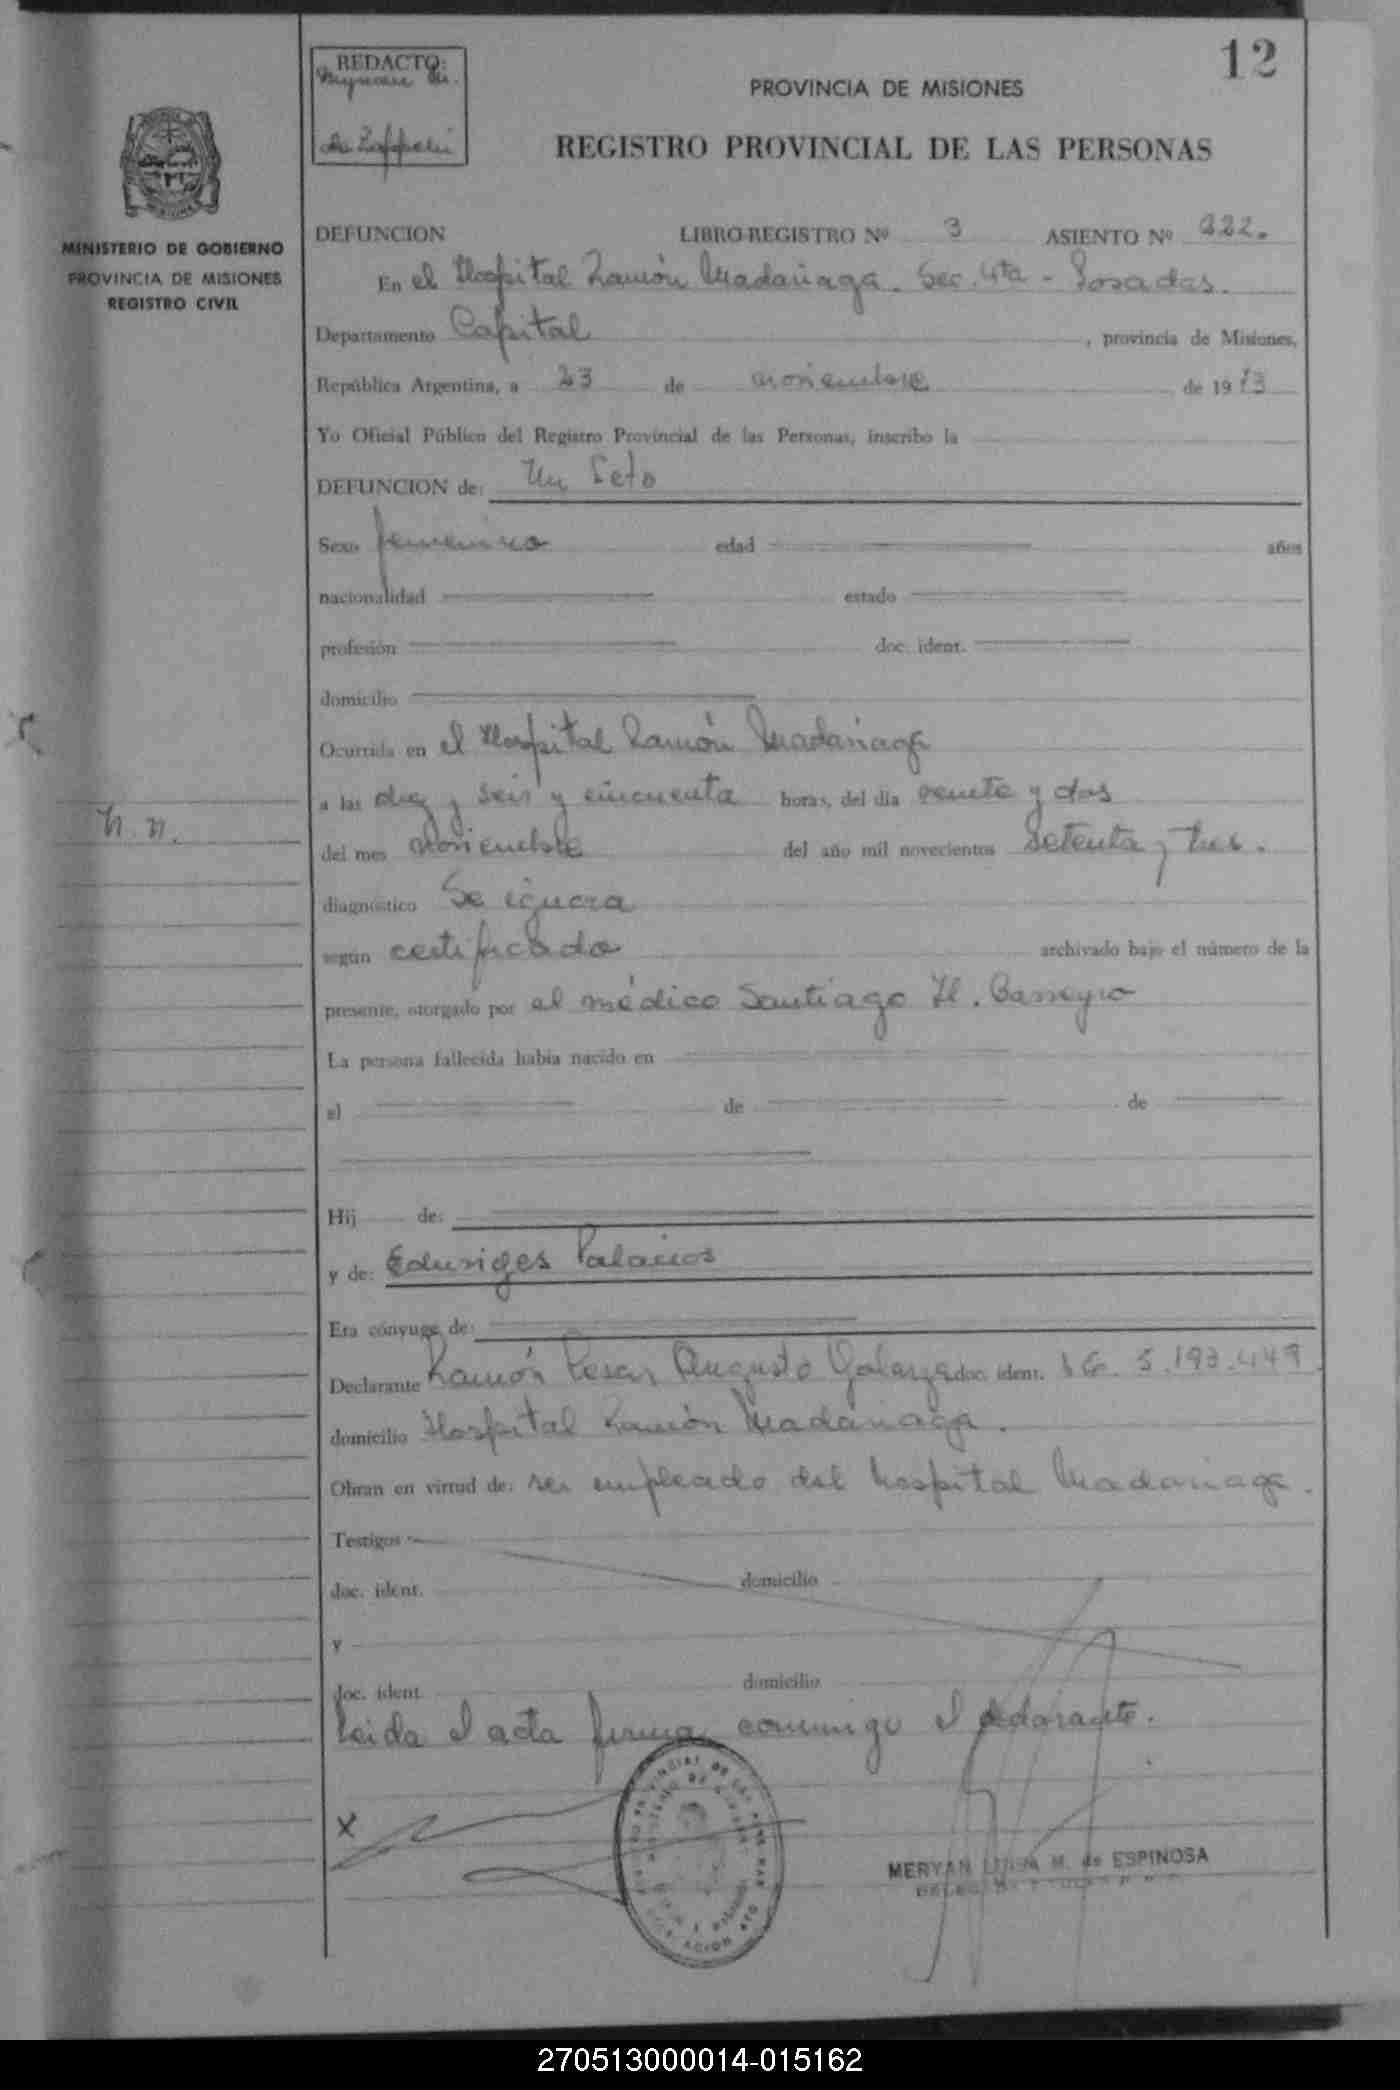 12
REDACTO:
PROVINCIA DE MISIONES
REGISTRO PROVINCIAL DE LAS PERSONAS
MINISTERIO DE GOBIERNO
PROVINCIA DE MISIONES
REGISTRO CIVIL
DEFUNCION LIBRO-REGISTRO Nº 3 ASIENTO Nº 222.
En el Hospital Ramón Madariaga. Sec. 4ta - Posadas.
Departamento Capital, provincia de Misiones,
República Argentina, a 23 de noviembre de 1973
Yo Oficial Público del Registro Provincial de las Personas, inscribo la
DEFUNCION de: Un Feto
Sexo femenino edad años
nacionalidad estado
profesión doc. ident.
domicilio
Ocurrida en el Hospital Ramón Madariaga
a las diez y seis y cincuenta horas, del día veinte y dos
N.N.
del mes noviembre del año mil novecientos setenta y tres.
diagnóstico Se ignora
según certificado archivado bajo el número de la
presente, otorgado por el médico Santiago H. Barreyro
La persona fallecida había nacido en
el de de
Hij de:
y de: Eduviges Palacios
Era cónyuge de:
Declarante Ramón Cesar Augusto Galarza doc. ident. 5.193.449
domicilio Hospital Ramón Madariaga.
Obran en virtud de: ser empleado del hospital Madariaga.
Testigos
doc. ident. domicilio
y
doc. ident. domicilio
Leida el acta firma conmigo el declarante.
X
MERYAN LUISA M. de ESPINOSA
270513000014-015162